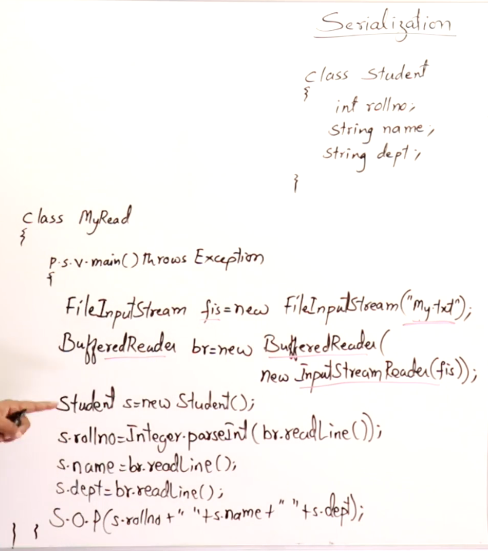 Serialization
class Student
{
int rollno;
String name;
String dept;
}
class MyRead
{
P.S.V.main() throws Exception
{
FileInputStream fis=new FileInputStream("My.txt");
BufferedReader br=new BufferedReader(
new InputStreamReader(fis));
Student s=new Student();
s.rollno=Integer.parseInt(br.readLine());
s.name=br.readLine();
s.dept=br.readLine();
S.O.P(s.rollno+" "+s.name+" "+s.dept);
} }